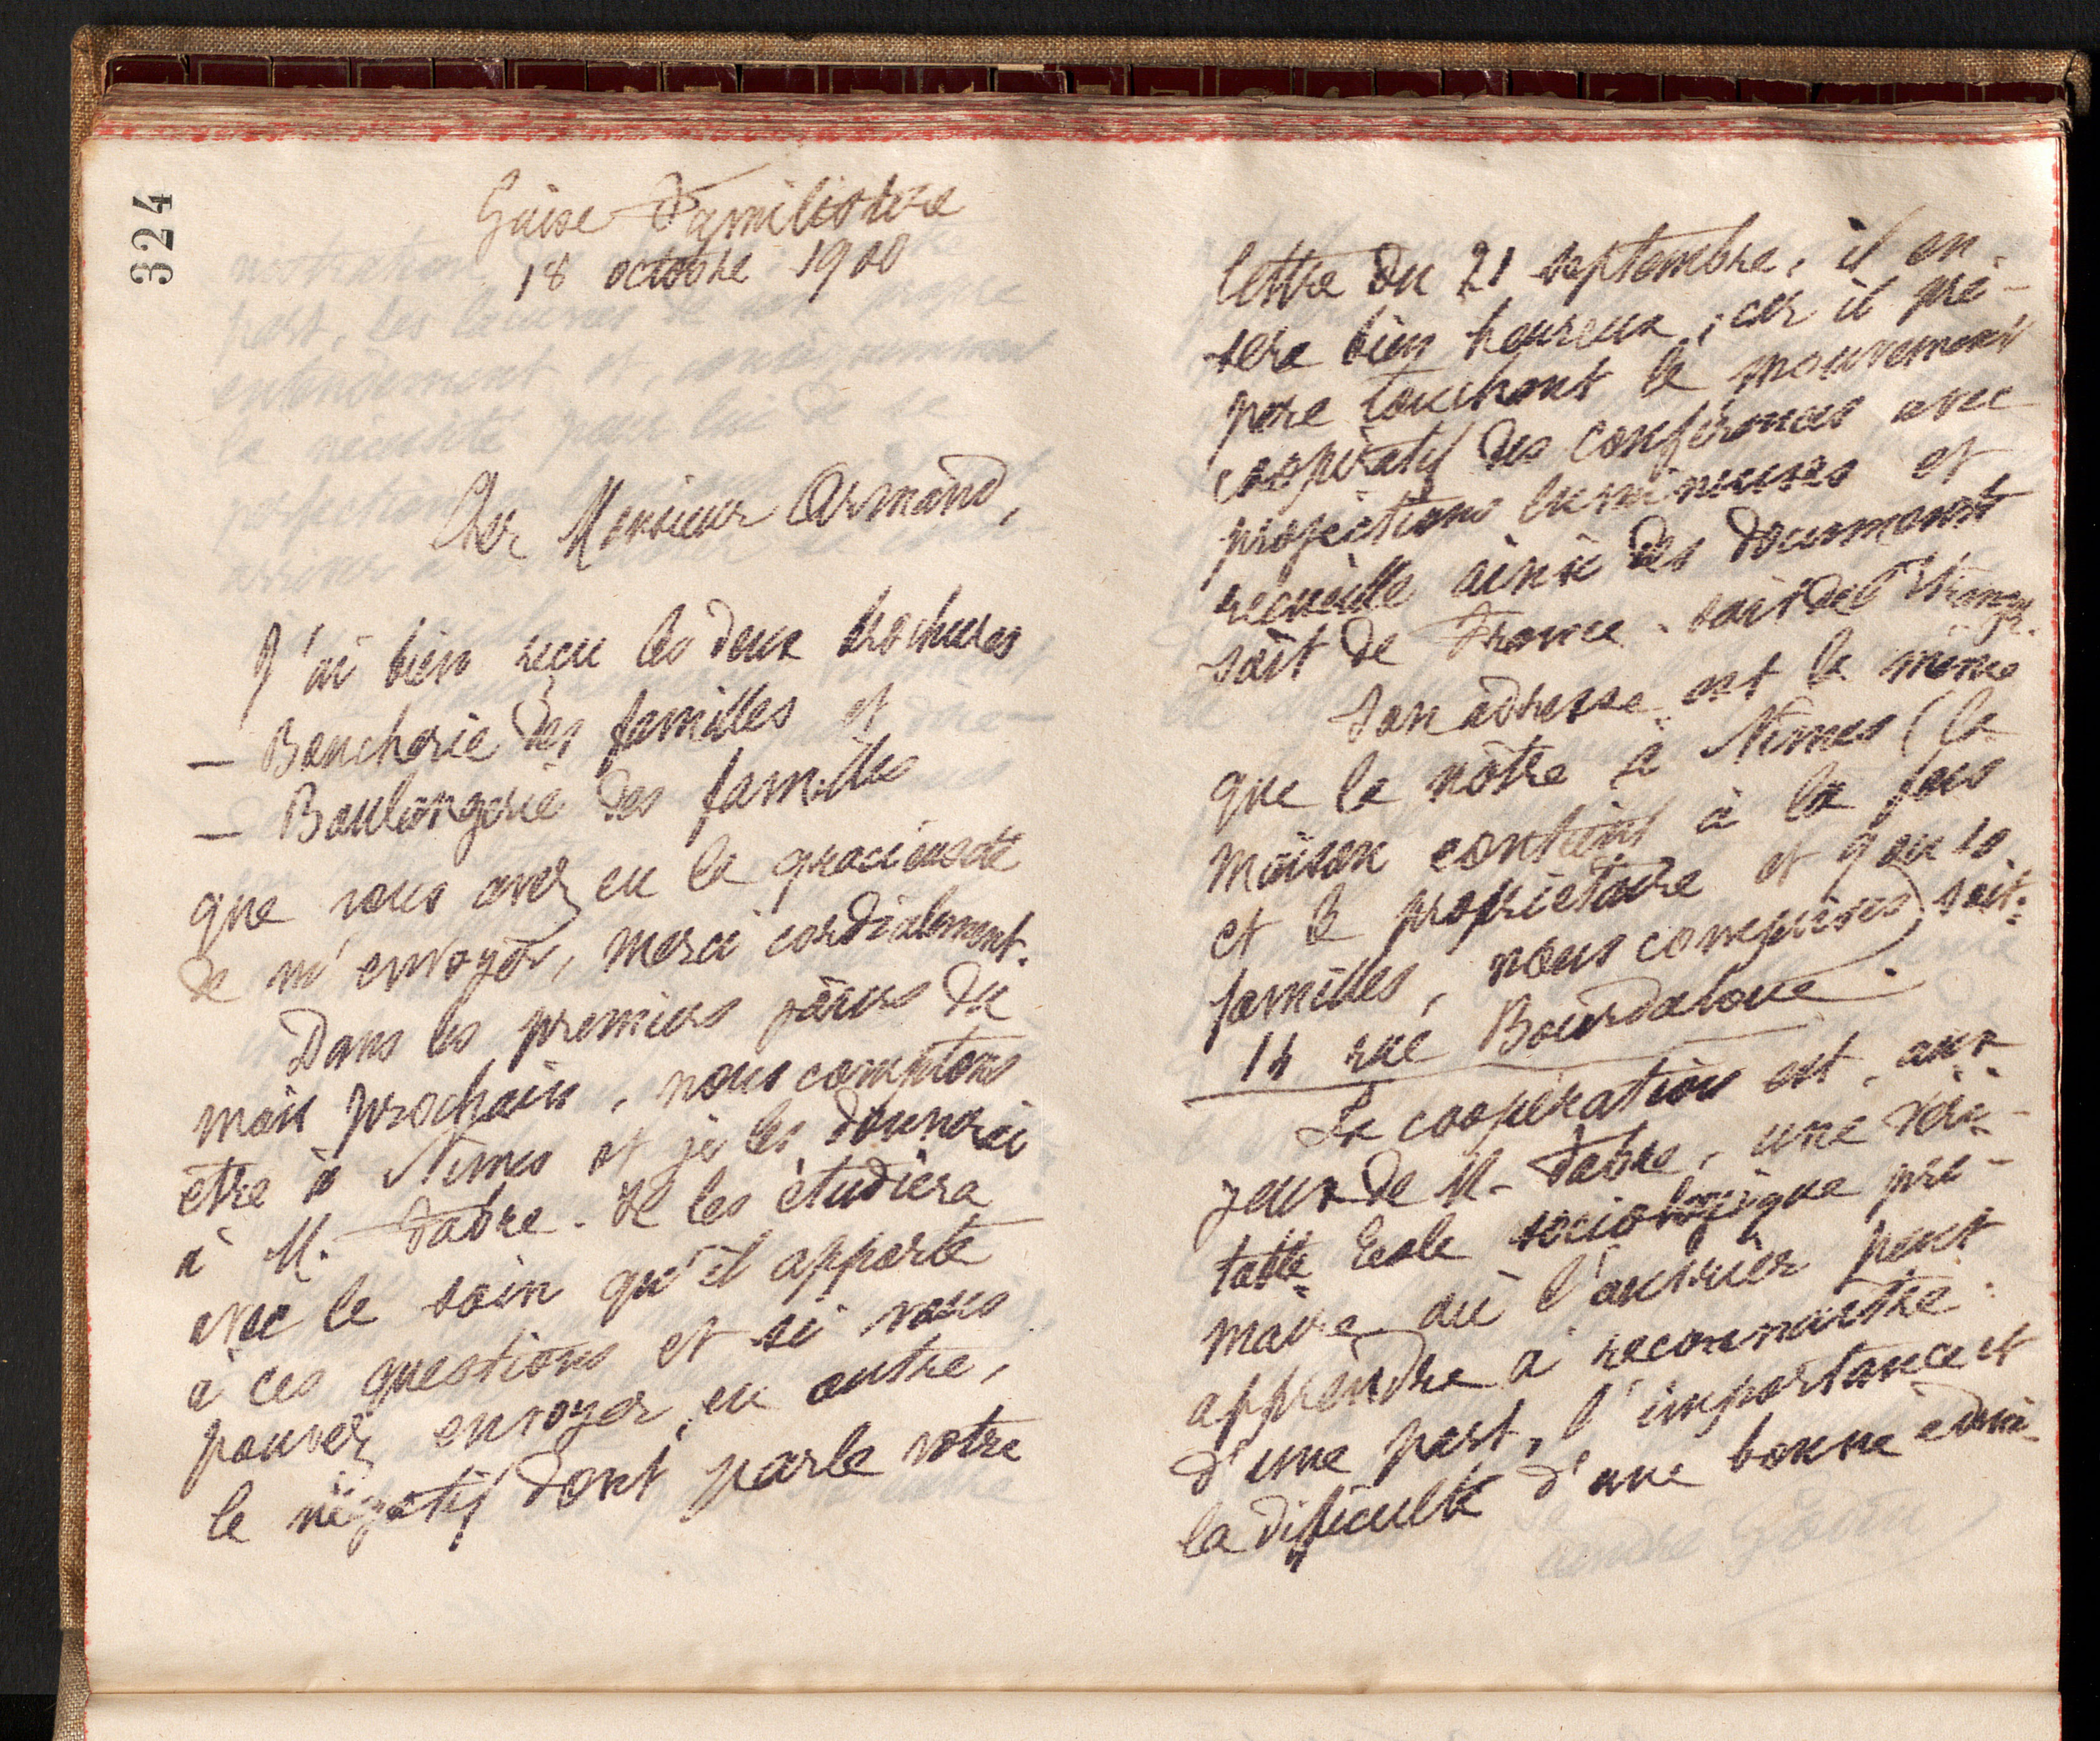 324
Guise Familistère
18 octobre 1900
Cher Monsieur Armand,
J'ai bien reçu les deux brochures
— Boucherie des familles et
— Boulangerie des familles
que vous avez eu la gracieuseté
de m'envoyer, merci cordialement.
Dans les premiers jours du
mois prochain, nous comptons
être à Nîmes et je les donnerai
à M. Fabre. Il les étudiera
avec le soin qu'il apporte
à ces questions et si vous
pouvez envoyer, en outre,
le négatif dont parle votre
lettre du 21 septembre, il en
sera bien heureux, car il pré-
pare touchant le mouvement
coopératif des conférences avec
projections lumineuses et
recueille ainsi des documents
soit de France, soit de l'étranger.
Son adresse est la même
que la nôtre à Nîmes (la
maison contient à la fois
et le propriétaire et
familles, nous comprises) soit:
14 rue Bourdaloue.
La coopération est, aux
yeux de M. Fabre, une véri-
table Ecole sociologique pri-
maire où l'ouvrier peut
apprendre à reconnaître
d'une part, l'importance et
la difficulté d'une bonne admi-